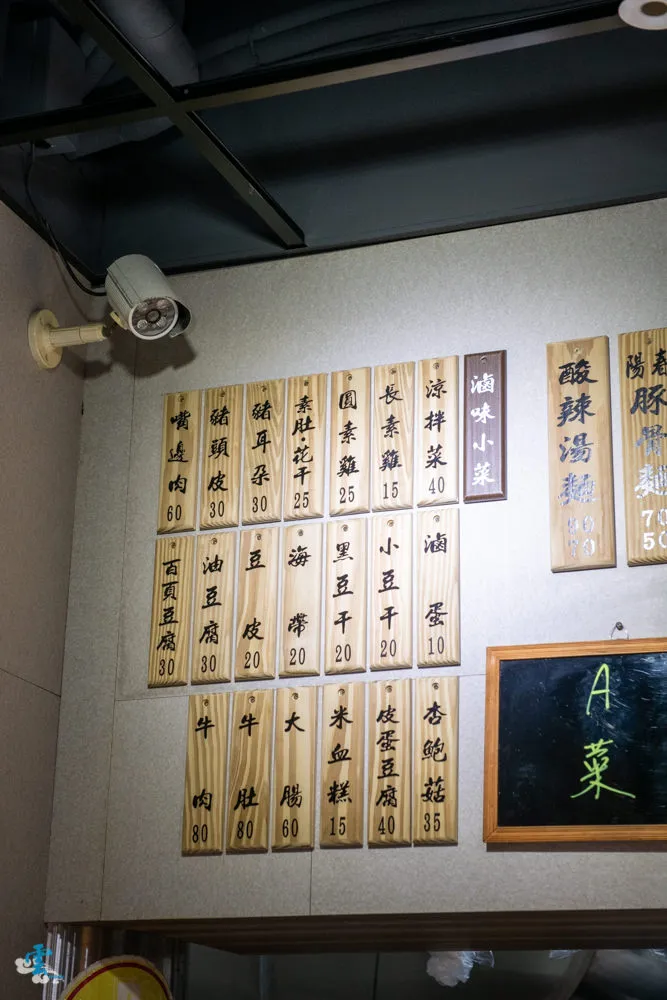 滷味小菜
涼拌菜 40
長素雞 15
圓素雞 25
素肚·花干 25
豬耳朵 30
豬頭皮 30
嘴邊肉 60
滷蛋 10
小豆干 20
黑豆干 20
海帶 20
豆皮 20
油豆腐 30
百頁豆腐 30
杏鮑菇 35
皮蛋豆腐 40
米血糕 15
大腸 60
牛肚 80
牛肉 80
陽春
豚骨麵
70
50
酸辣湯麵
A菜
雲